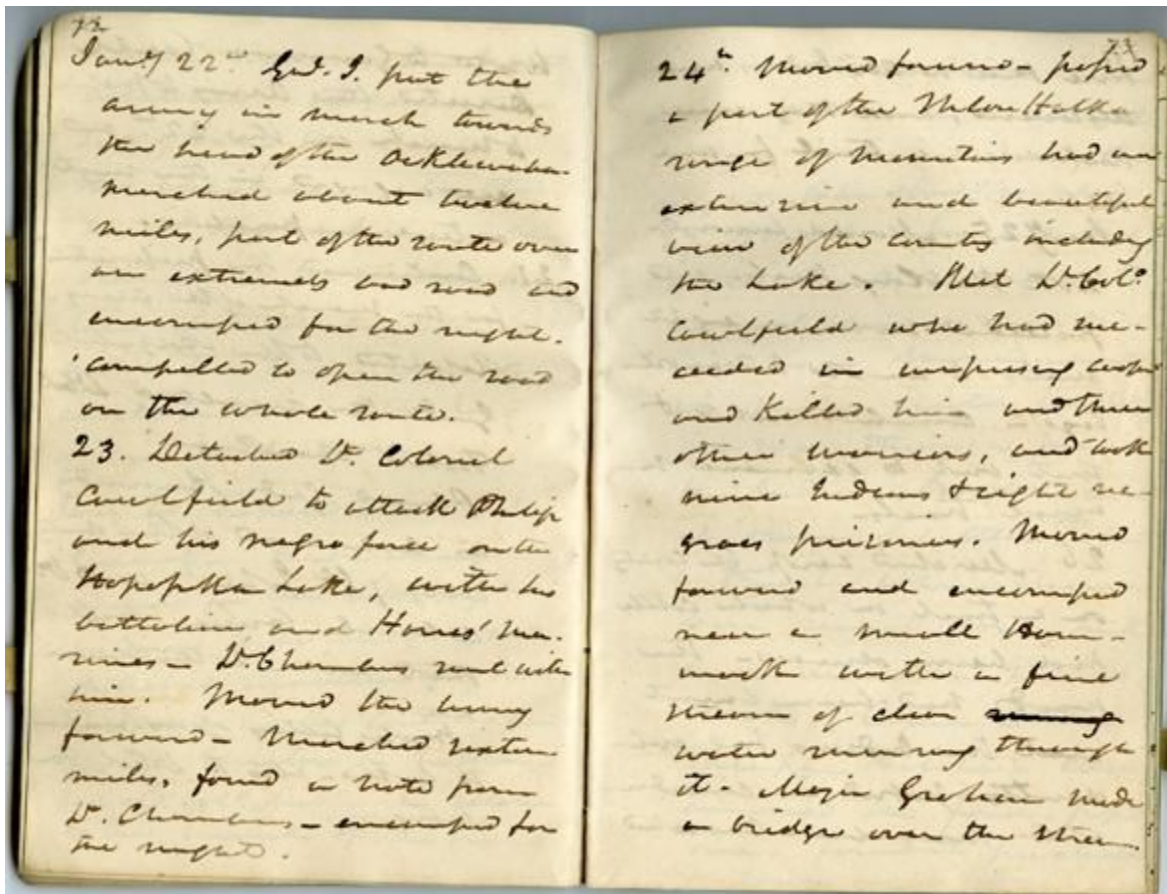 72
Jany 22nd Genl. J. put the
army in march towards
the head of the Ocklewaha.
marched about twelve
miles, part of the route over
an extremely bad road and
encamped for the night.
compelled to open the road
on the whole route.
23. Detached Lt. Colonel
Caulfield to attack Philip
and his negro force on the
Hapopka Lake, with his
battalion and Harris' Ma-
rines - Lt. Chambers sent with
him. Moved the army
forward - Marched sixteen
miles, found a note from
Lt. Chambers - encamped for
the night.
73
24th. Moved forward - passed
a part of the Thlau Hatka
range of mountains had an
extensive and beautiful
view of the country including
the Lake. Met Lt. Colo.
Caulfield who had suc-
ceeded in surprising
and killed him and three
other warriors, and took
nine Indians & eight ne-
groes prisoners. Moved
forward and encamped
near a small Ham-
mock with a fine
stream of clear running
water running through
it - Major Graham made
a bridge over the stream.